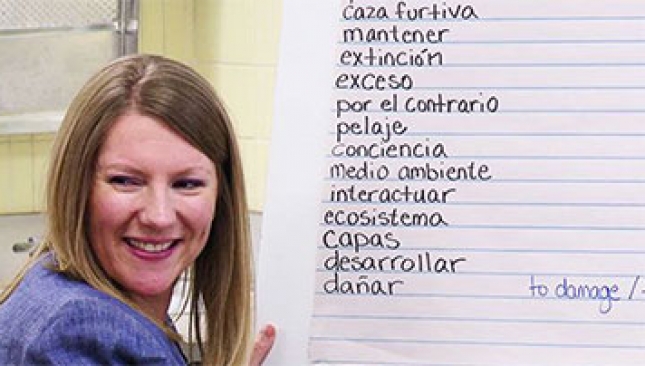 caza furtiva
mantener
extinción
exceso
por el contrario
pelaje
conciencia
medio ambiente
interactuar
ecosistema
capas
desarrollar
dañar to damage /